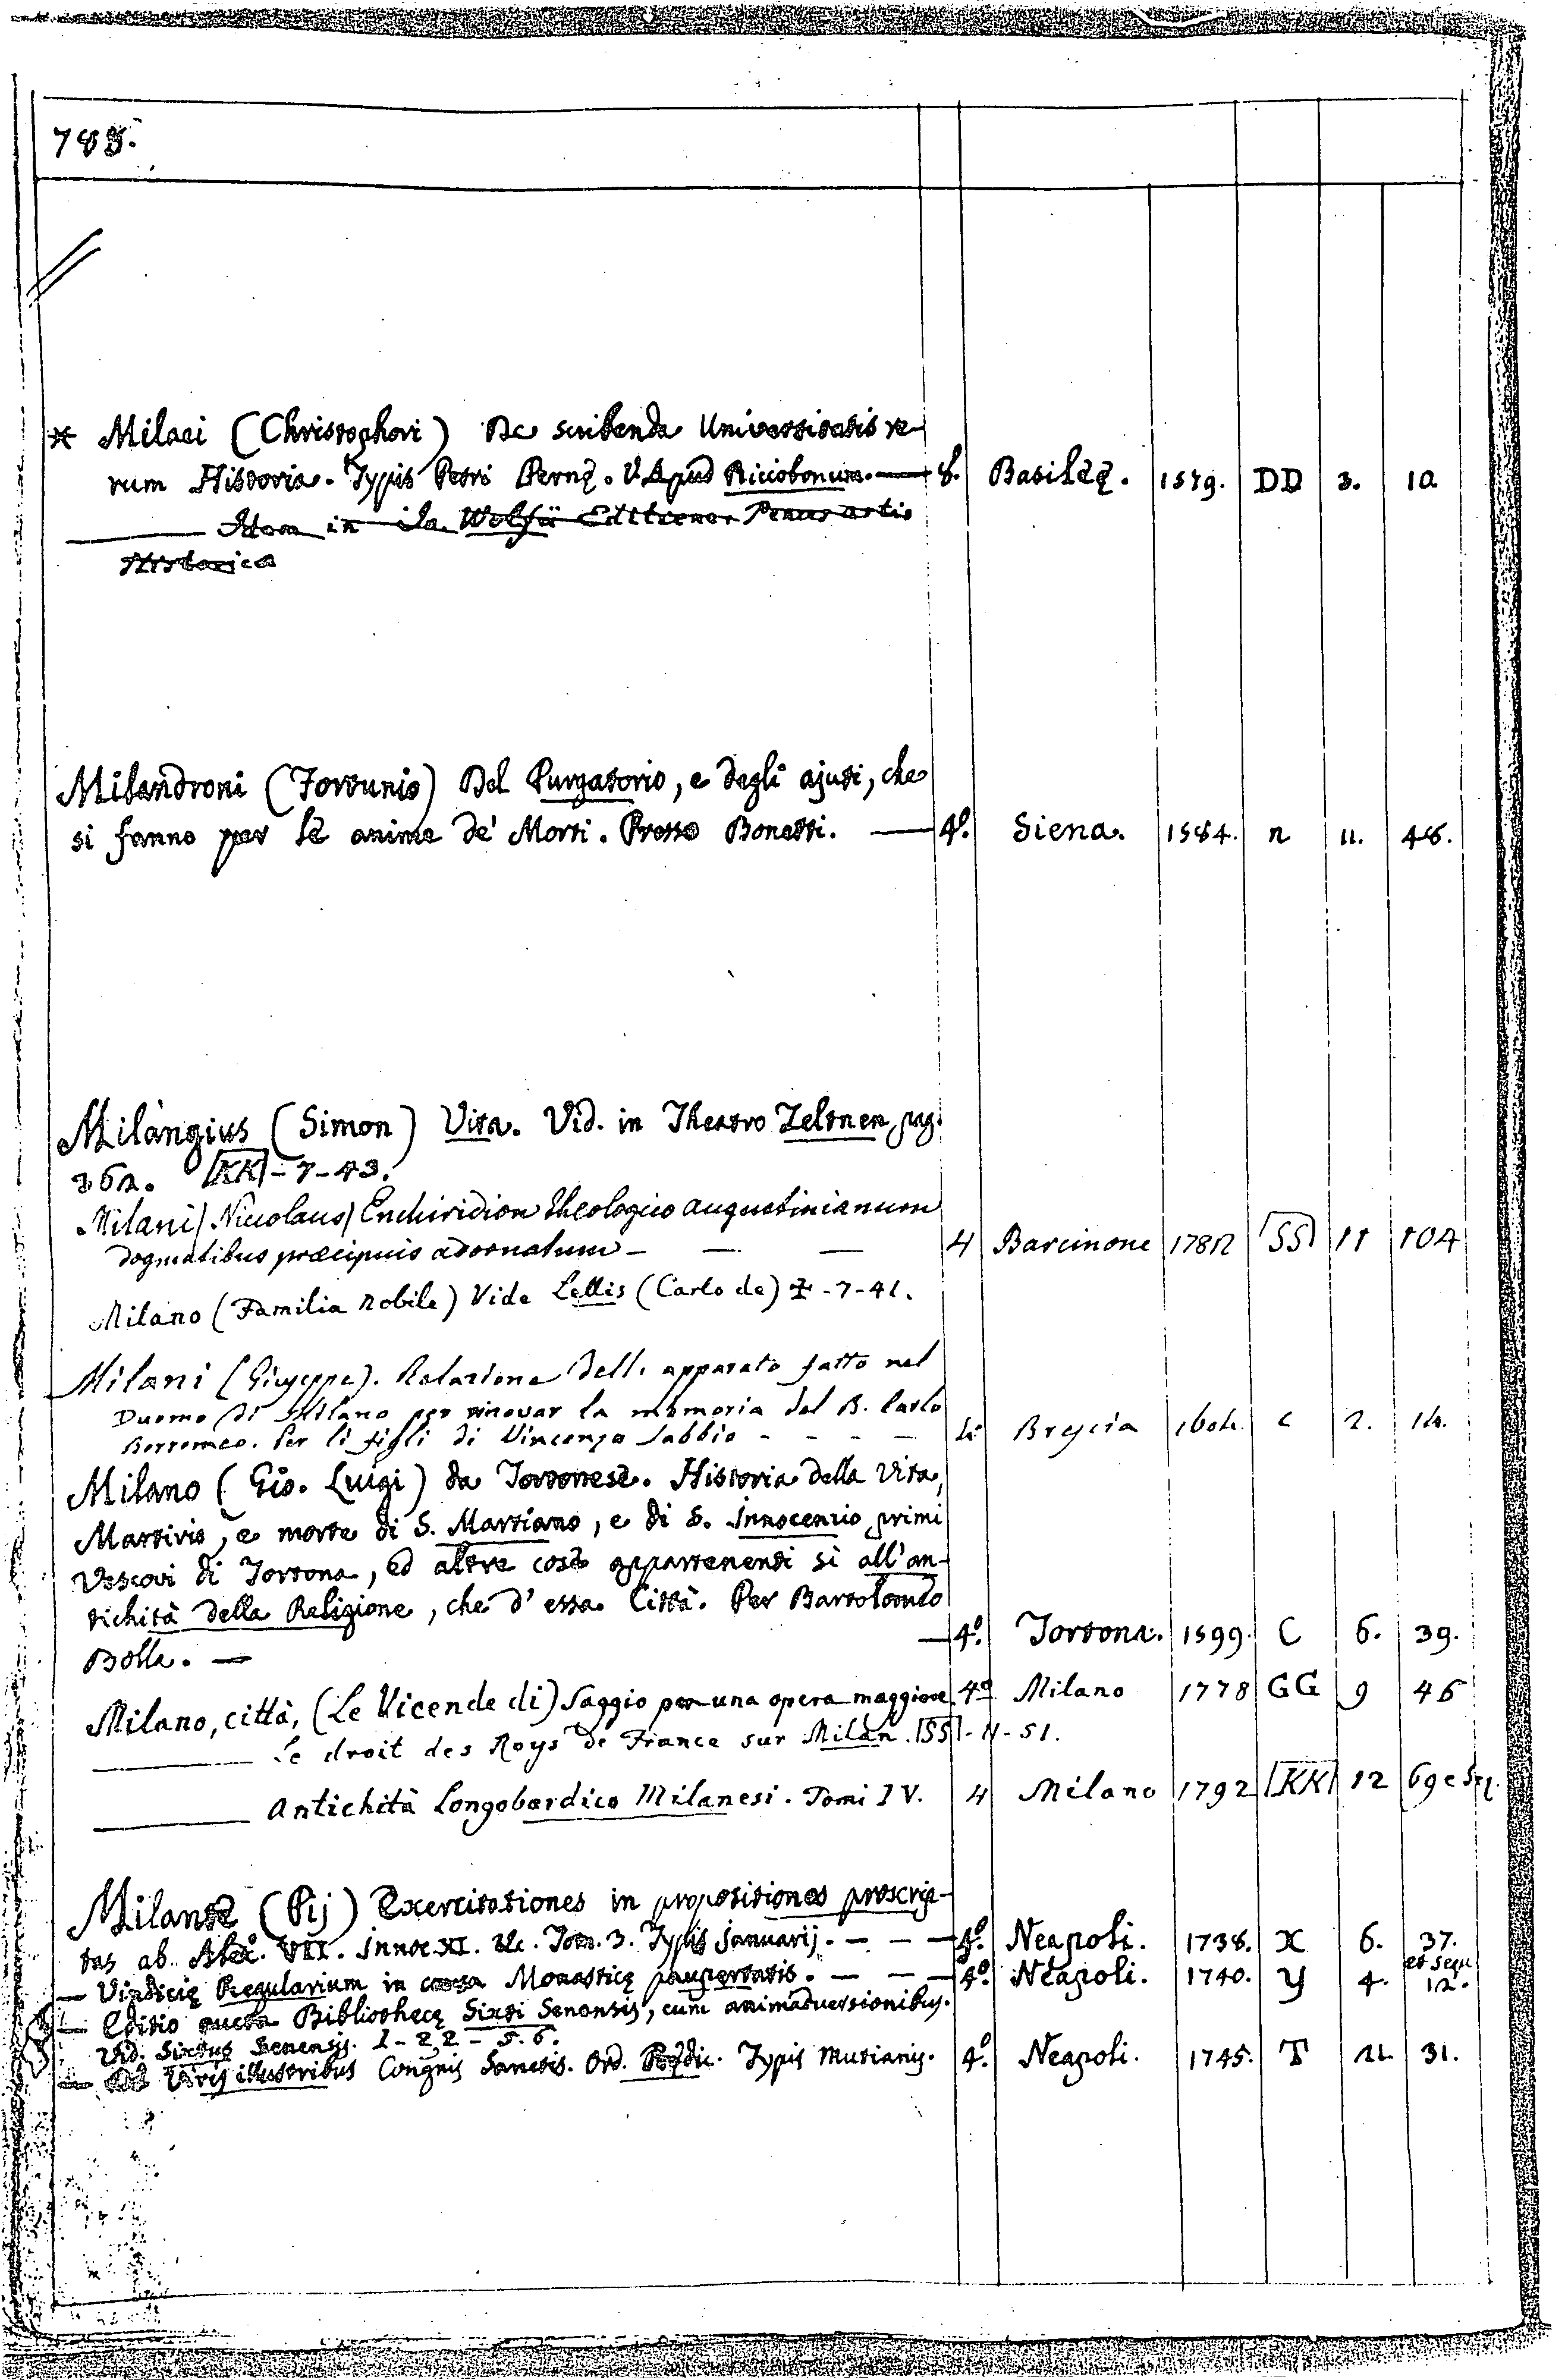 788.
* Milaei (Christophori) De scribenda Universitatis re-
rum Historia. Typis Petri Pernę. V. Apud Riccobonum. — 8. Basileę. 1579. DD 3. 10.
— Idem in Jo. Wolfii Editione Penus artis
Historica
Milandroni (Fortunio) Del Purgatorio, e degli ajuti, che
si fanno per le anime de' Morti. Presso Bonetti. — 4º. Siena. 1584. n 11. 48.
Milangius (Simon) Vita. Vid. in Theatro Zeltner, pag.
362. KK-7-43.
Milani (Nicolaus) Enchiridion theologico augustinianum
dogmatibus præcipuis adornatum — — — 4 Barcinone 1782 SS 11 104
Milano (Familia nobile) Vide Lellis (Carlo de) ‡-7-41.
Milani (Giuseppe). Relatione dell' apparato fatto nel
Duomo di Milano per rinovar la memoria del B. Carlo
Borromeo. Per li figli di Vincenzo Sabbio - - - - 4º Brescia 1604. c 2. 14.
Milano (Gio. Luigi) da Tortonese. Historia della Vita,
Martirio, e morte di S. Martiano, e di S. Innocenzio primi
Vescovi di Tortona, ed altre cose appartenenti sì all'an-
tichità della Religione, che d' essa Città. Per Bartolomeo
Bolla. — — 4º. Tortona. 1599. C 6. 39.
Milano, città, (Le Vicende di) Saggio per una opera maggiore 4º Milano 1778 GG 9 46
— Le droit des Roys de France sur Milan. SS-11-51.
— Antichità Longobardico Milanesi. Tomi IV. 4 Milano 1792 KK 12 69 e Seq.
Milante (Pij) Exercitationes in propositiones proscrip-
tas ab Alex. VII. Innoc. XI. &c. Tom. 3. Typis Januarij. — — — 4º. Neapoli. 1738. X 6. 37. et sequ
— Vindicię Regularium in causa Monasticę paupertatis. — — — 4º. Neapoli. 1740. Y 4. 12.
— Editio aucta Bibliothecę Sixti Senensis, cum animadversionibus.
Vid. Sixtus Senensis. 1-22-5.6.
— De Viris illustribus Congnis Sanctis. Ord. Prędic. Typis Mutianis. 4º. Neapoli. 1745. T 12 31.